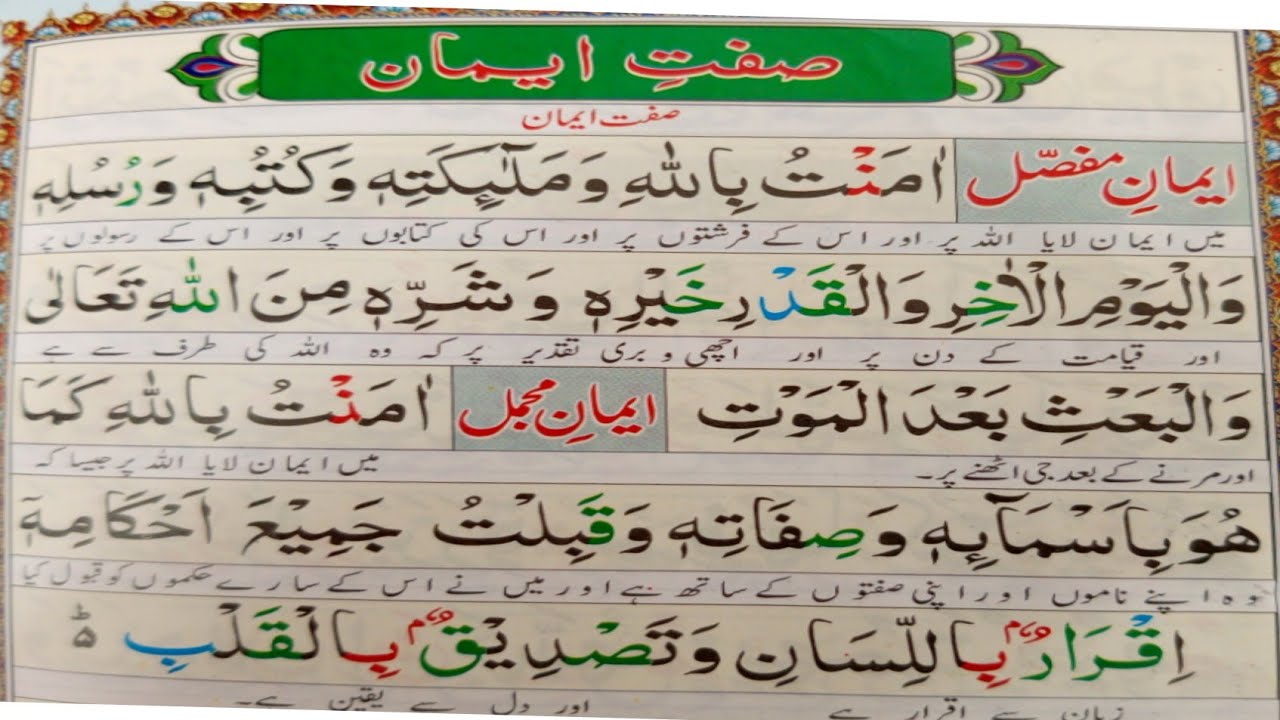 صفتِ ایمان
صفت ایمان
ایمانِ مفصّل اٰمَنْتُ بِاللّٰهِ وَمَلٰٓئِكَتِهٖ وَكُتُبِهٖ وَرُسُلِهٖ
میں ایمان لایا اللہ پر اور اس کے فرشتوں پر اور اس کی کتابوں پر اور اس کے رسولوں پر
وَالْيَوْمِ الْاٰخِرِ وَالْقَدْرِ خَيْرِهٖ وَشَرِّهٖ مِنَ اللّٰهِ تَعَالٰى
اور قیامت کے دن پر اور اچھی و بری تقدیر پر کہ وہ اللہ کی طرف سے ہے
وَالْبَعْثِ بَعْدَ الْمَوْتِ ایمانِ مجمل اٰمَنْتُ بِاللّٰهِ كَمَا
اور مرنے کے بعد جی اٹھنے پر۔ میں ایمان لایا اللہ پر جیسا کہ
هُوَ بِاَسْمَآئِهٖ وَصِفَاتِهٖ وَقَبِلْتُ جَمِيْعَ اَحْكَامِهٖٓ
وہ اپنے ناموں اور اپنی صفتوں کے ساتھ ہے اور میں نے اس کے سارے حکموں کو قبول کیا
اِقْرَارٌۢ بِاللِّسَانِ وَتَصْدِيْقٌۢ بِالْقَلْبِ ؕ
زبان سے اقرار ہے اور دل سے یقین ہے۔